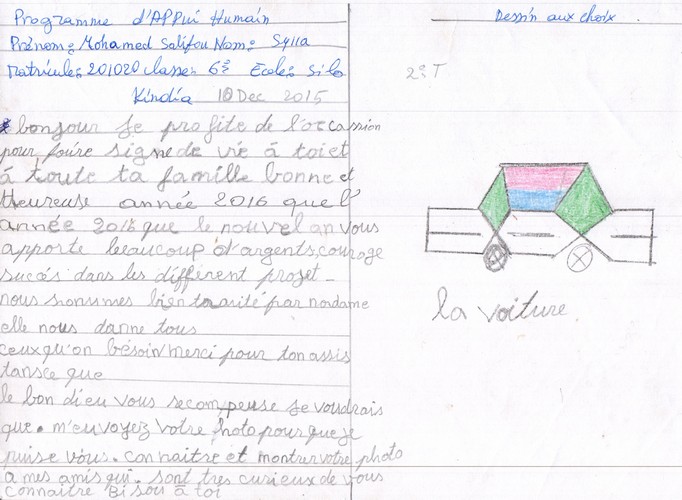 Programme d'APPui Humain
Prénom: Mohamed Salifou Nom: Sylla
Matricule: 201020 classe: 6è Ecole: Silo
Kindia 10 Dec 2015
bonjour Je profite de l'occassion
pour foire signe de vie à toi et
à toute ta famille bonne et
Heureuse année 2016 que l'
année 2016 que le nouvel an vous
apporte beaucoup d'argents, courage
succés dans les différent projet -
nous sommes bien traité par madame
elle nous danne tous
ceux qu'on bésoin merci pour ton assis
tansce que
le bon dieu vous recompense Je voudrais
que m'envoyez votre photo pour que je
puise vous. connaitre et montrer votre photo
a mes amis qui. sont tres curieux de vous
connaitre Bisou à toi
Dessin aux choix
2è T
la voiture